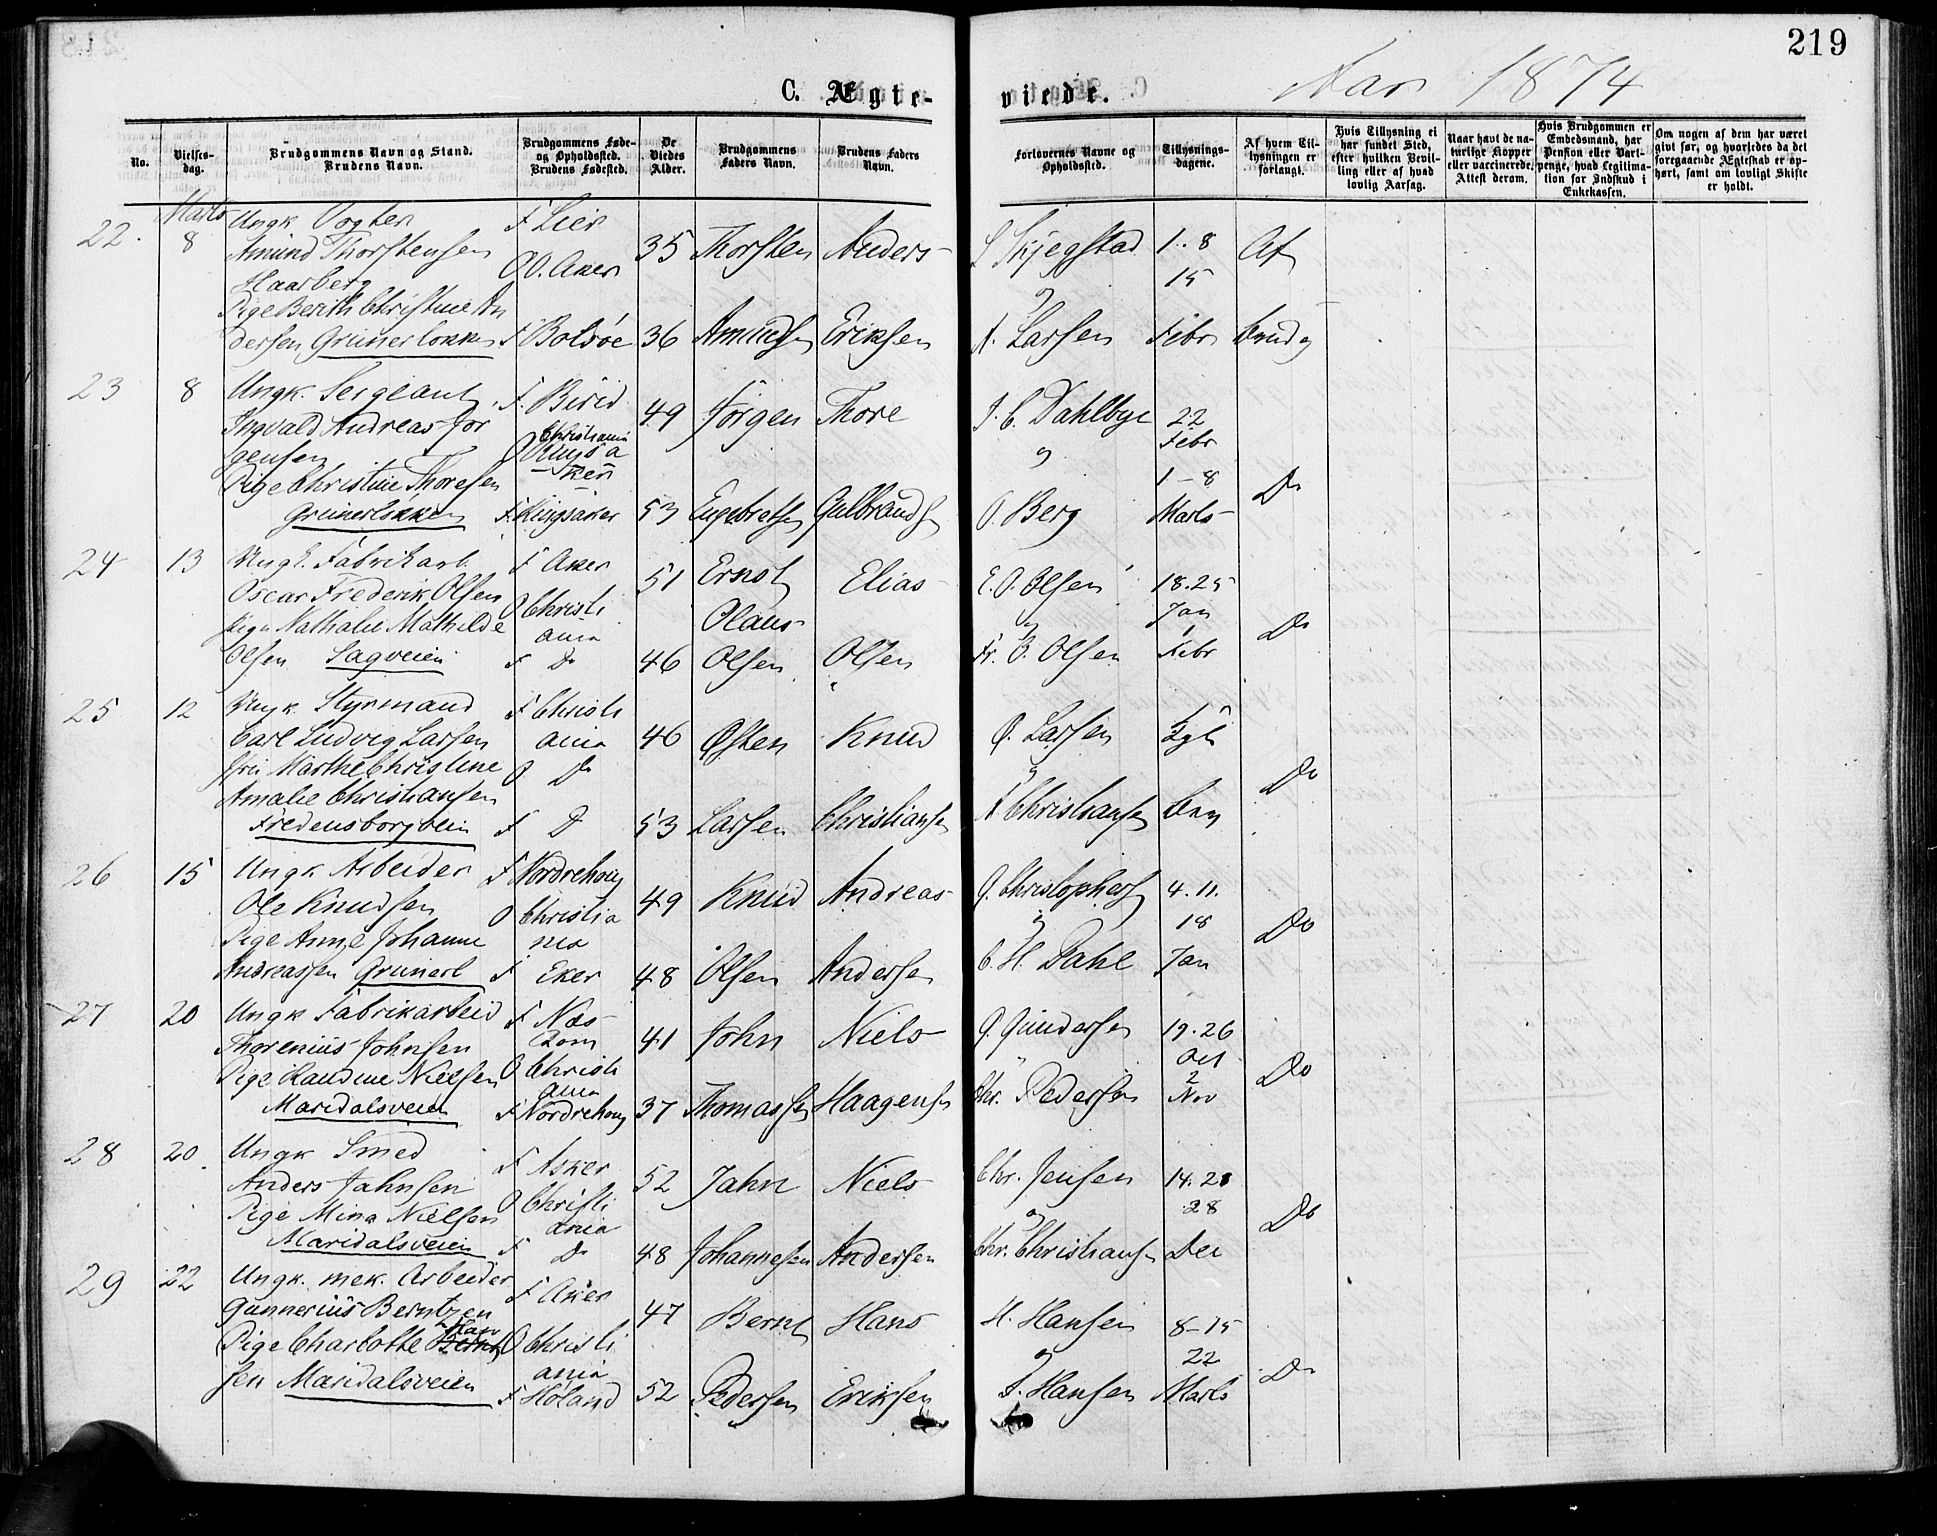 219
Aar 1874
C. Ægte- viede.
No.
Vielses-
dag.
Brudgommens Navn og Stand.
Brudens Navn.
Brudgommens Føde-
og Opholdssted.
Brudens Fødested.
De
Viedes
Alder.
Brudgommens
Faders Navn.
Brudens Faders
Navn.
Forlovernes Navne og
Opholdssted.
Tillysnings-
dagene.
Af hvem Til-
lysningen er
forlangt.
Hvis Tillysning ei
har fundet Sted,
efter hvilken Bevil-
ling eller af hvad
lovlig Aarsag.
Naar havt de na-
turlige Kopper
eller vaccinerede.
Attest derom.
Hvis Brudgommen er
Embedsmand, har
Pension eller Vart-
penge, hvad Legitima-
tion for Indskud i
Enkekassen.
Om nogen af dem har været
givt før, og hvorledes da det
foregaaende Ægteskab er op-
hørt, samt om lovligt Skifte
er holdt.
22.
Marts
8
Ungk. Vogter
Amund Thorstensen
Haarberg
Pige Berith Christine An
dersen Grünerløkken
F Lier
O O. Aker
F Bolsøe
35
36
Thorsten
Amundsen
Anders
Eriksen
L Skjegstad
og
A. Larsen
1. 8
15
Febr
Af
23
8
Ungk. Sergeant
Ingvald Andreas Jør
gensen
Pige Christine Thoresen
Grünerløkken
F. Birid
Christiania
O Ringsa
ker
F. Ringsaker
49
53
Jörgen
Engebretsen
Thore
Gulbrandsen
J. C. Dahlbye
og
O. Berg
22
Febr
1-8
Marts
Do
24
13
Ungk. Fabrikarb.
Oscar Frederik Olsen
Pige Nathalie Mathilde
Olsen Sagveien
F Aker
O Christi
ania
F Do
51
46
Ernst
Olaus
Olsen
Elias
Olsen
E. O. Olsen
og
Fr. O. Olsen
18. 25
Jan
1
Febr
Do
25
12
Ungk. Styrmand
Carl Ludvig Larsen
Marthe Christine
Amalie Christiansen
Fredensborgvein
F Christi
ania
O Do
F Do
46
53
Østen
Larsen
Knud
Christiansen
Ø. Larsen
og
A Christiansen
Do
26
15
Ungk Arbeider
Ole Knudsen
Pige Anne Johanne
Andreassen Grünerl
F Nordrehoug
O Christia
nia
F Eker
49
48
Knud
Olsen
Andreas
Andersen
G. Christophersen
og
C. H. Dahl
4. 11.
18
Jan
Do
27
20
Ungk Fabrikarbeid
Thorenius Johnsen
Pige Randine Nielsen
Maridalsveien
F Næs
Rom
O Christi
ania
F Nordrehoug
41
37
John
Thomassen
Niels
Haagensen
G. Gundersen
"
Chr. Pedersen
19. 26
Oct
2
Nov
Do
28
20.
Ungk Smed
Anders Jahnsen
Pige Mina Nielsen
Maridalsveien
F Asker
O Christi
ania
F Do
52
48
Jahn
Johannesen
Niels
Andersen
Chr. Jensen
og
Chr. Christiansen
14. 21
28
Dec
Do
29
22
Ungk. mek. Arbeider
Gunnerius Berntzen
Han
Pige Charlotte
sen Maridalsveien
F Aker
O Christi
ania
F Høland
47
52
Bernt
Pedersen
Hans
Eriksen
H. Hansen
og
A. Hansen
8-15
22
Marts
Do